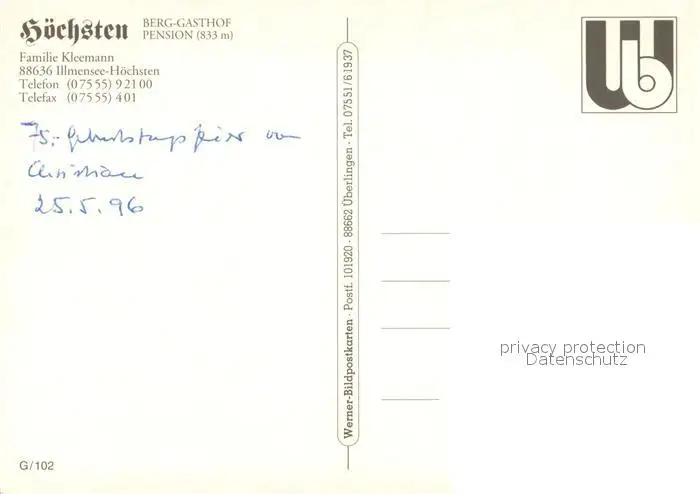 Höchsten BERG-GASTHOF
PENSION (833 m)
Familie Kleemann
88636 Illmensee-Höchsten
Telefon (07555) 92100
Telefax (07555) 401
75.-Geburtstagsfeier von
Christiane
25.5.96
Werner-Bildpostkarten · Postf. 101920 · 88662 Überlingen · Tel. 07551/61937
Üb
privacy protection
Datenschutz
G/102